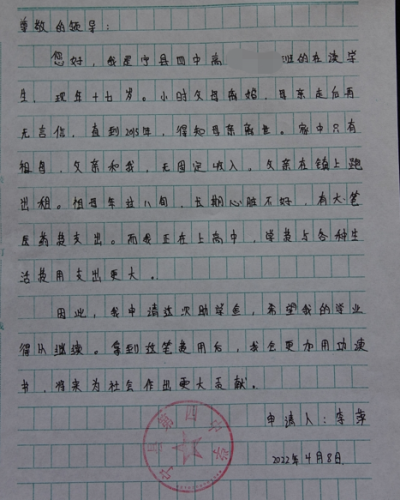 尊敬的领导：
您好，我是宁县四中高班的在读学
生，现年十七岁。小时父母离婚，母亲走后再
无音信，直到2015年，得知母亲离世。家中只有
祖母，父亲和我，无固定收入，父亲在镇上跑
出租。祖母年过八旬，长期心脏不好，有大笔
医药费支出。而我正在上高中，学费与各种生
活费用支出更大。
因此，我申请这次助学金，希望我的学业
得以继续。拿到这笔费用后，我会更加用功读
书，将来为社会作出更大贡献。
申请人：李萍
2022年4月8日